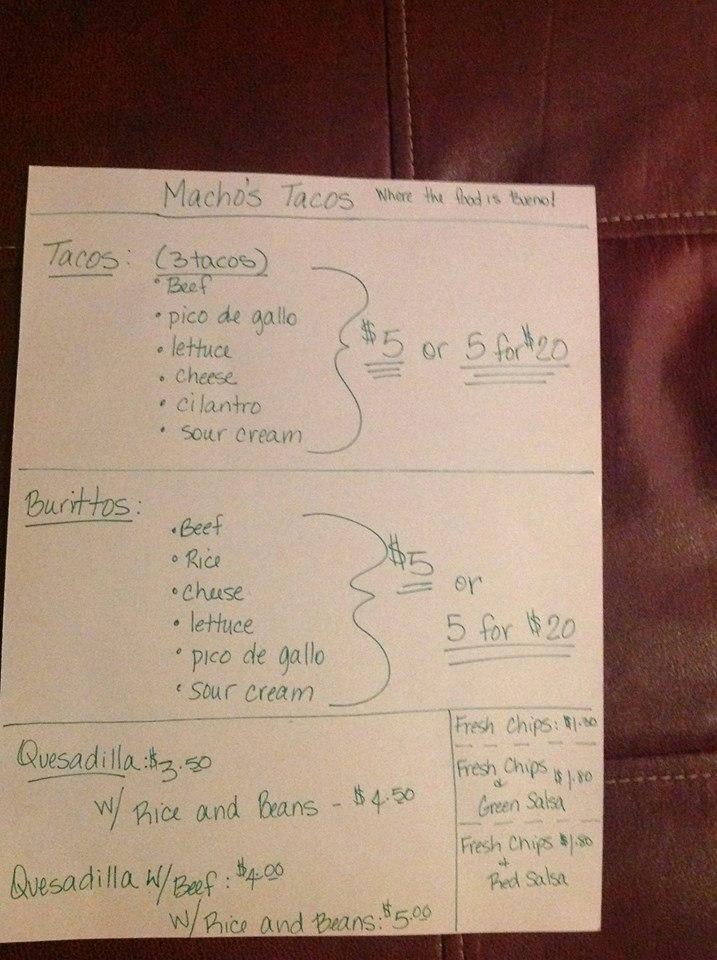 Macho's Tacos Where the food is Bueno!
Tacos: (3 tacos)
• Beef
• pico de gallo
• lettuce
• cheese
• cilantro
• sour cream
$5 or 5 for $20
Burittos:
• Beef
• Rice
• cheese
• lettuce
• pico de gallo
• sour cream
$5 or
5 for $20
Quesadilla: $3.50
W/ Rice and Beans - $4.50
Quesadilla W/ Beef: $4.00
W/ Rice and Beans: $5.00
Fresh Chips:
Fresh Chips $1.80
&
Green Salsa
Fresh Chips $1.80
+
Red Salsa